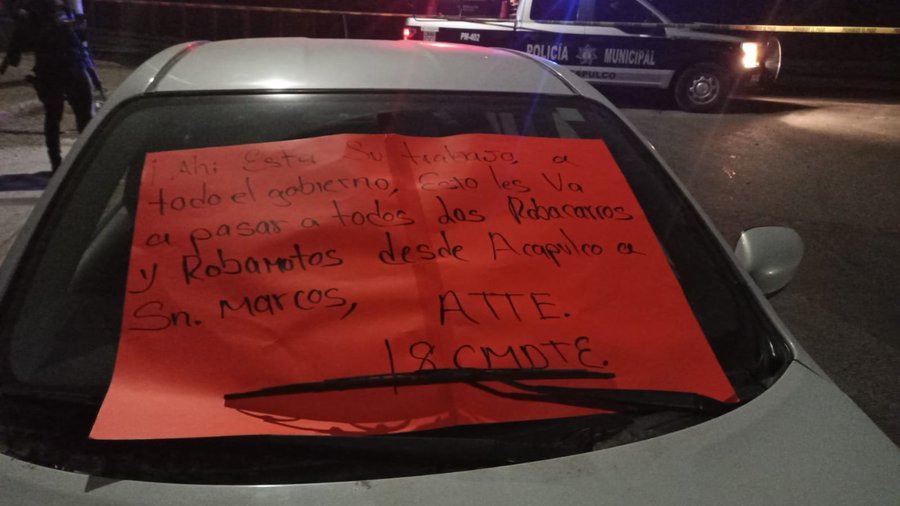 PM-402
POLICÍA MUNICIPAL
¡Ahi Esta Su trabajo, a
todo el gobierno, Esto les Va
a pasar a todos los Robacarros
y Robamotos desde Acapulco a
Sn. Marcos,
ATTE.
18 CMDTE.